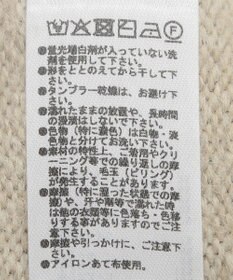 ●蛍光増白剤が入っていない洗
剤を使用して下さい。
●形をととのえてから干して下
さい。
●タンブラー乾燥は、お避け下
さい。
●濡れたままの放置や、長時間
の浸漬はしないで下さい。
●色物（特に濃色）は白物・淡
色物と分けてお洗い下さい。
●素材の特性上、ご着用やクリ
ーニング等での繰り返しの摩
擦により、毛玉（ピリング）
が発生することがあります。
●摩擦（特に湿った状態での摩
擦）や、汗や雨等で濡れた時
は他の衣類等に色落ち・色移
りする事が有りますのでご注
意下さい。
●摩擦や引っかけに、ご注意下
さい。
●アイロンあて布使用。